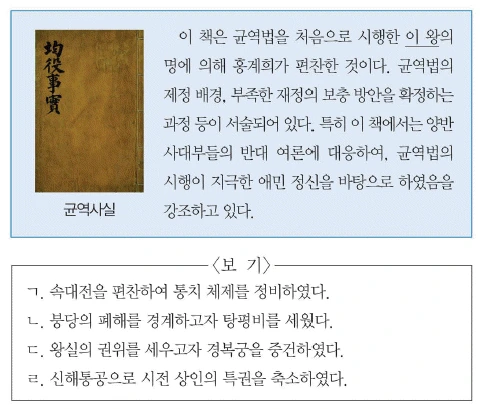 均役事實
균역사실
이 책은 균역법을 처음으로 시행한 이 왕의
명에 의해 홍계희가 편찬한 것이다. 균역법의
제정 배경, 부족한 재정의 보충 방안을 확정하는
과정 등이 서술되어 있다. 특히 이 책에서는 양반
사대부들의 반대 여론에 대응하여, 균역법의
시행이 지극한 애민 정신을 바탕으로 하였음을
강조하고 있다.
<보 기>
ㄱ. 속대전을 편찬하여 통치 체제를 정비하였다.
ㄴ. 붕당의 폐해를 경계하고자 탕평비를 세웠다.
ㄷ. 왕실의 권위를 세우고자 경복궁을 중건하였다.
ㄹ. 신해통공으로 시전 상인의 특권을 축소하였다.